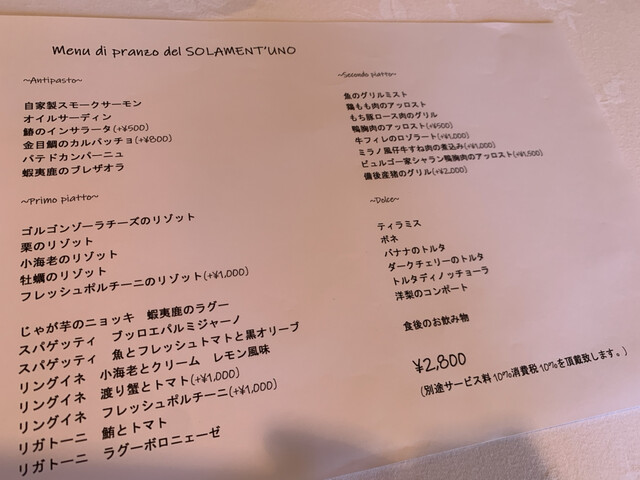 Menu di pranzo del SOLAMENT'UNO
~Antipasto~
自家製スモークサーモン
オイルサーディン
鯵のインサラータ(+¥500)
金目鯛のカルパッチョ(+¥800)
パテドカンパーニュ
蝦夷鹿のブレザオラ
~Primo piatto~
ゴルゴンゾーラチーズのリゾット
栗のリゾット
小海老のリゾット
牡蠣のリゾット
フレッシュポルチーニのリゾット(+¥1,000)
じゃが芋のニョッキ 蝦夷鹿のラグー
スパゲッティ ブッロエパルミジャーノ
スパゲッティ 魚とフレッシュトマトと黒オリーブ
リングイネ 小海老とクリーム レモン風味
リングイネ 渡り蟹とトマト(+¥1,000)
リングイネ フレッシュポルチーニ(+¥1,000)
リガトーニ 鮪とトマト
リガトーニ ラグーボロニェーゼ
~Secondo piatto~
魚のグリルミスト
鶏もも肉のアッロスト
もち豚ロース肉のグリル
鴨胸肉のアッロスト(+¥500)
牛フィレのロゾラート(+¥1,000)
ミラノ風仔牛すね肉の煮込み(+¥1,000)
ビュルゴー家シャラン鴨胸肉のアッロスト(+¥1,500)
備後産猪のグリル(+¥2,000)
~Dolce~
ティラミス
ボネ
バナナのトルタ
ダークチェリーのトルタ
トルタディノッチョーラ
洋梨のコンポート
食後のお飲み物
¥2,800
(別途サービス料10%消費税10%を頂戴致します。)